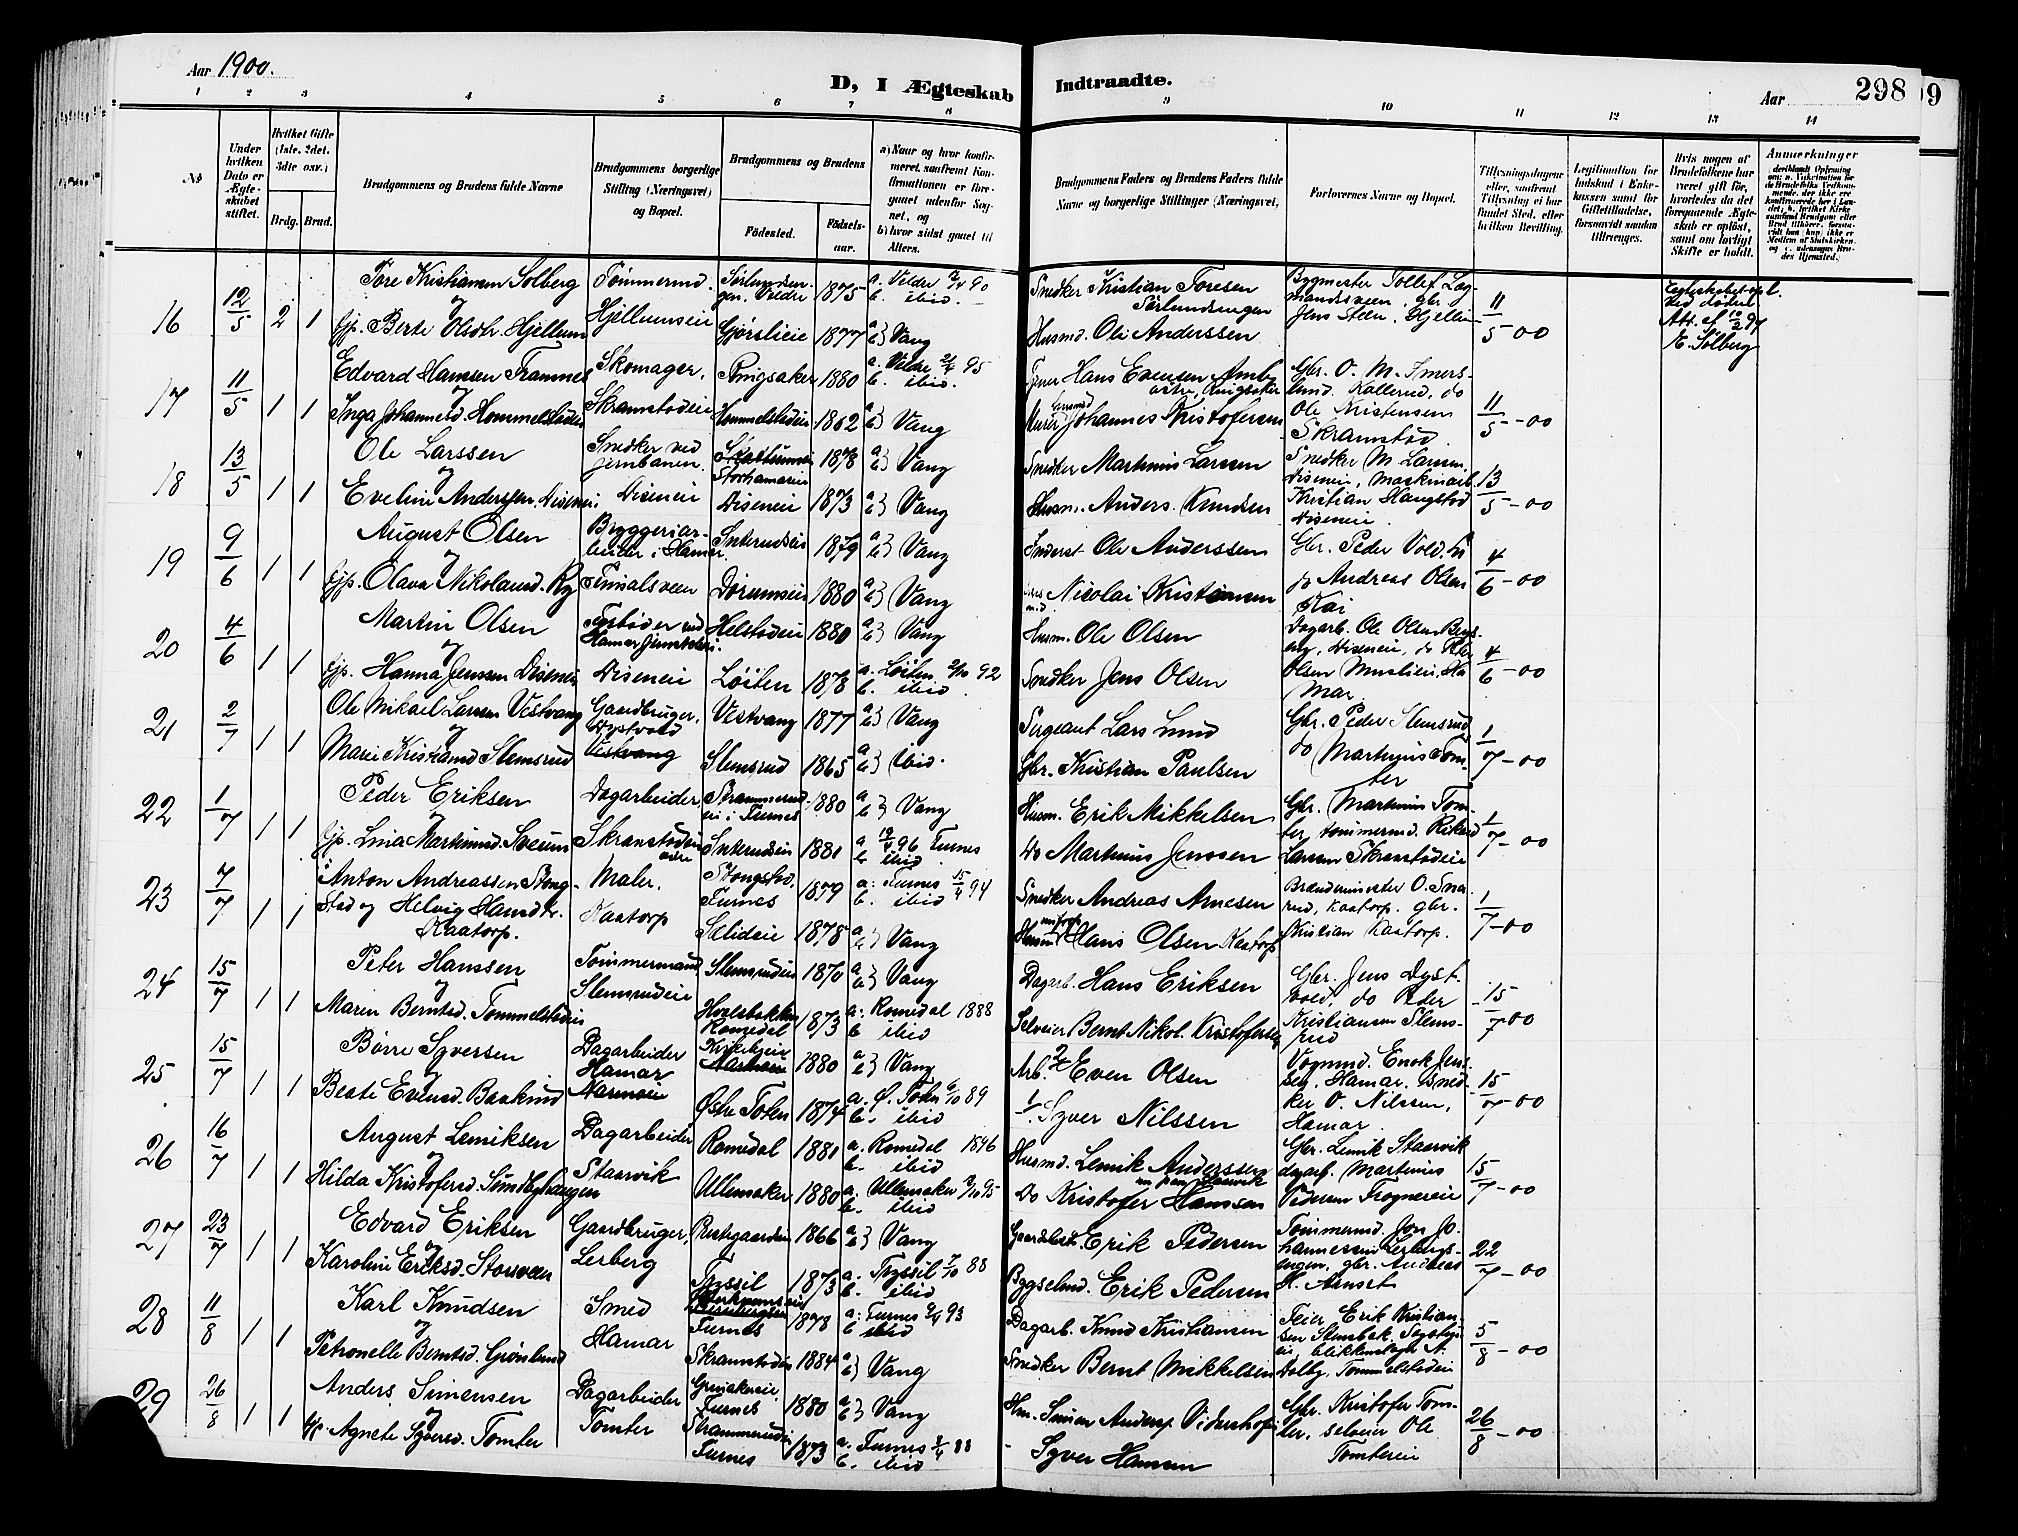 Aar 1900.
D, I Ægteskab Indtraadte.
Aar
298
99
1 2 3 4 5 6 7 8 9 10 11 12 13 14
No
Under hvilken Dato er Ægteskabet stiftet.
Hvilket Gifte (1ste, 2det, 3die osv.)
Brdg. Brud.
Brudgommens og Brudens fulde Navne
Brudgommens borgerlige Stilling (Næringsvei) og Bopæl.
Brudgommens og Brudens
Fødested. Fødselsaar.
a) Naar og hvor konfirmeret, samfremt Konfirmationen er foregaaet udenfor Sognet, og
b) hvor sidst gaaet til Alters.
Brudgommens Faders og Brudens Faders fulde Navne og borgerlige Stillinger (Næringsvei)
Forlovernes Navne og Bopæl.
Tillysningsdagene eller, samfremt Tillysning ei har fundet Sted, efter hvilken Bevilling.
Legitimation for Indskud i Enkekassen samt for Giftetilladelse, forsaavidt saadan tiltrænges.
Hvis nogen af Brudefolkene har været gift før, hvorledes da det foregaaende Ægteskab er opløst, samt om lovligt Skifte er holdt.
Anmerkninger
16 12/5 2 1
Tore Kristiansen Solberg
og
pp. Berte Olsdtr. Hjellum
Tømmermd. Hjellumseie
1875
Gjørslieie 1877
a. Veldre 90
b. ibid.
a b} Vang
Snedker Kristian Toresen
Husmd. Ole Anderssen
Bygmester Tollef Lagmandsveen, gbr Jens Steen, Hjellum
11/5-00
Ægteskabet opl. ved døden
Att. af 10/2 97
N. Solberg
17 11/5 1 1
Edvard Hansen Frammes
og
Inga Johannesd. Hommelstadeie
Skomager, Skramstadeie
Ringsaker 1880
Hommelstadeie 1862
a. Veldre 95
b. ibid.
a b} Vang
Hans Evensen
Murer Johannes Kristofersen
Gbr. O. M. Imerslund, Kallerud, do Ole Kristensen Skramstad.
11/5-00
18 13/5 1 1
Ole Larssen
og
Eveline Anderssen, Diseneie
Snedker ved jernbanen. Diseneie
Storhamareie 1878
Diseneie 1873
a b} Vang
a b} Vang
Snedker Martinius Larssen
Husm. Anders Knudsen
Snedker M. Larssen, Diseneie, maskinarb. Kristian Haugstad Diseneie.
13/5-00
19 9/6 1 1
August Olsen
og
pp. Olava Nikolaisd. Ry
Bryggeriarbeider i Hamar. Finsalsveen
Snterudseie 1879
Dørumseie 1880
a b} Vang
a b} Vang
Inderst Ole Anderssen
Nicolai Kristiansen
Gbr. Peder Vold, do Andreas Olsen Kai
4/6-00
20 4/6 1 1
Martin Olsen
og
pp. Hanna Jenssen Diseneie
Diseneie
Helstadeie 1880
Løiten 1878
a b} Vang
a. Løiten 2/10 92
b. ibid
Husm. Ole Olsen
Snedker Jens Olsen
Dagarb. Ole Olsen Berg, Diseneie, do Peder Olsen Muslieie, Hamar.
4/6-00
21 2/7 1 1
Ole Mikael Larssen Vestvang
og
Marie Kristiansd Slemsrud
Gaardbruger, Dystvold Vestvang
Vestvang 1877
Slemsrud 1865
a b} Vang
a b} ibid.
Sergeant Lars Lund
Gbr. Kristian Paulsen
Gbr. Peder Slemsrud do Martinius Tomter
1/7-00
22 1/7 1 1
Peder Eriksen
og
pp. Lina Martinusd. Sveum
Dagarbeider, Skramstadeie
Strammerudeie i Furnes 1880
Snterudseie 1881
a b} Vang
a 19/4 96 Furnes
b ibid
Husm. Erik Mikkelsen
Do Martinius Jenssen
Gbr. Martinius Tomter, tømmermd. Rikard Larssen Skramstadeie
1/7-00
23 7/7 1 1
Anton Andreassen Stongstad og Helvig Hansdtr. Kaatorp.
Maler, Kaatorp
Stongstad, Furnes 1879
Sælideie 1878
a: Furnes 15/4 94
b. ibid
a b} Vang
Snedker Andreas Arnesen
Husmd Hans Olsen Kaatorp
Brændemester O. Snarud, Kaatorp. gbr. Kristian Kaatorp.
1/7-00
24 15/7 1 1
Peter Hanssen
og
Maren Berntsd. Tommelstadeie
Tømmermand Slemsrudeie
Slemsrudeie 1870
Hoelsbakken Romedal 1873
a b} Vang
a: Romedal 1888
b ibid
Dagarb. Hans Eriksen
Selveier Bernt Nikol. Kristofersen
Gbr. Jens Dystvold, do Peder Kristiansen Slemsrud
15/7-00
25 15/7 1 1
Børre Syversen
og
Beate Evensd. Bakkerud
Dagarbeider Hamar Narenseie
1880
Østre Toten 1874
a b} Vang
a. Ø. Toten 6/10 89
b. ibid
Arb. 2/ Even Olsen
1/ Syver Nilssen
Vognmd. Enok Jenssen, Hamar, snedker O. Nilssen, Hamar.
15/7-00
26 16/7 1 1
August Lemiksen
og
Hilda Kristofersd. Sundbyhaugen
Dagarbeider Staarvik
Romedal 1881
Ullensaker 1880
a. Romedal 1896
b. ibid
a. Ullensaker 95
b. ibid
Husmd. Lemik Anderssen
Do Kristofer Hanssen
Gbr. Lemik Staarvik dagarb. Martinius Pedersen Frognereie
15/7-00
27 23/7 1 1
Edvard Eriksen
og
Karoline Eriksd. Storsveen
Gaardbruger, Lerberg
1866
Trysil 1873
a b} Vang
a. Trysil 7/10 88
b. ibid
Erik Pedersen
Bygselmd. Erik Pedersen
Tømmermd. Jon Johannessen Lerbergsengen, gbr. Andreas H. Arnset
22/7-00
28 11/8 1 1
Karl Knudsen
og
Petronelle Berntsd. Grønlund
Smed Hamar
Furnes 1878
Skramstadeie 1884
a: Furnes 9/4 93
b ibid
a b} Vang
Dagarb. Knud Kristiansen
Snedker Bernt Mikkelsen
Feier Erik Kristiansen Stensbak, N. Dalby, Tommelstadeie
5/8-00
29 26/8 1 1
Anders Simensen
og
pp. Agnete Syversd. Tomter
Dagarbeider Tomter
Furnes 1880
Strammerudeie Furnes 1873
a b} Vang
a. Furnes 88
b. ibid
Hm. Simen Anders. Vidershofeie
- Syver Hansen
Gbr. Kristofer Tomter, selveier Ole Tomtereie
26/8-00